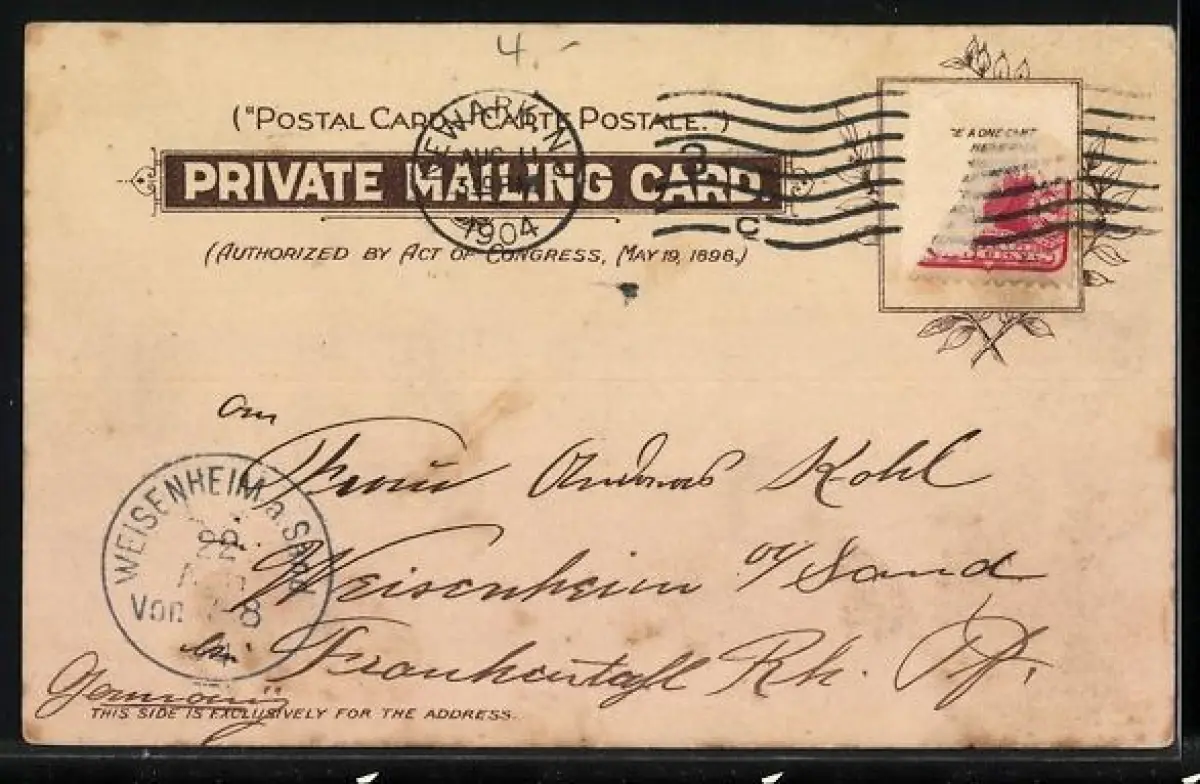 4.-
("POSTAL CARD - CARTE POSTALE.")
NEWARK, N.
AUG 11
1904
3
C
PRIVATE MAILING CARD.
(AUTHORIZED BY ACT OF CONGRESS, MAY 19, 1898.)
A ONE CENT
An
Frau Andreas Kohl
WEISENHEIM a. SAND
22
Vor 8
Weisenheim a/ Sand
bei Frankenthal Rh. Pf.
Germany
THIS SIDE IS EXCLUSIVELY FOR THE ADDRESS.